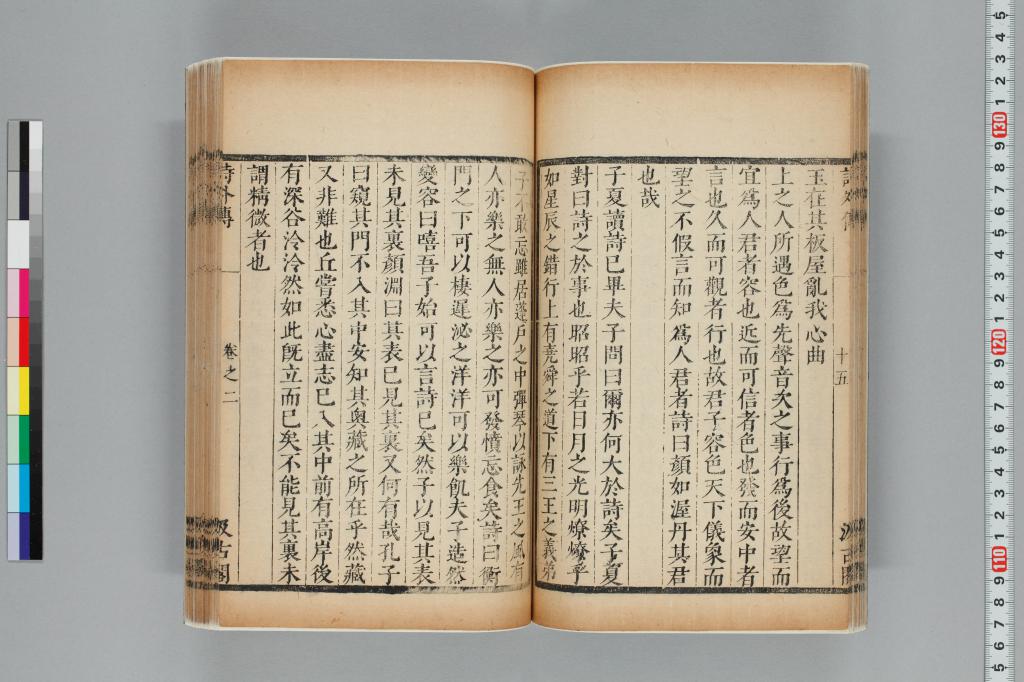 玉在其板屋亂我心曲
上之人所遇色爲先聲音次之事行爲後故望而
宜爲人君者容也近而可信者色也發而安中者
言也久而可觀者行也故君子容色天下儀象而
望之不假言而知爲人君者詩曰顏如渥丹其君
也哉
子夏讀詩已畢夫子問曰爾亦何大於詩矣子夏
對曰詩之於事也昭昭乎若日月之光明燎燎乎
如星辰之錯行上有堯舜之道下有三王之義弟
子不敢忘雖居蓬戶之中彈琴以詠先王之風有
人亦樂之無人亦樂之亦可發憤忘食矣詩曰衡
門之下可以棲遲泌之洋洋可以樂飢夫子造然
變容曰嘻吾子始可以言詩已矣然子以見其表
未見其裏顏淵曰其表已見其裏又何有哉孔子
曰窺其門不入其中安知其奧藏之所在乎然藏
又非難也丘嘗悉心盡志已入其中前有高岸後
有深谷泠泠然如此旣立而已矣不能見其裏未
謂精微者也
詩外傳
卷之二
汲古閣
十五
汲古閣
5
4
3
2
1
130
9
8
7
6
5
4
3
2
1
120
9
8
7
6
5
4
3
2
1
110
9
8
7
6
5